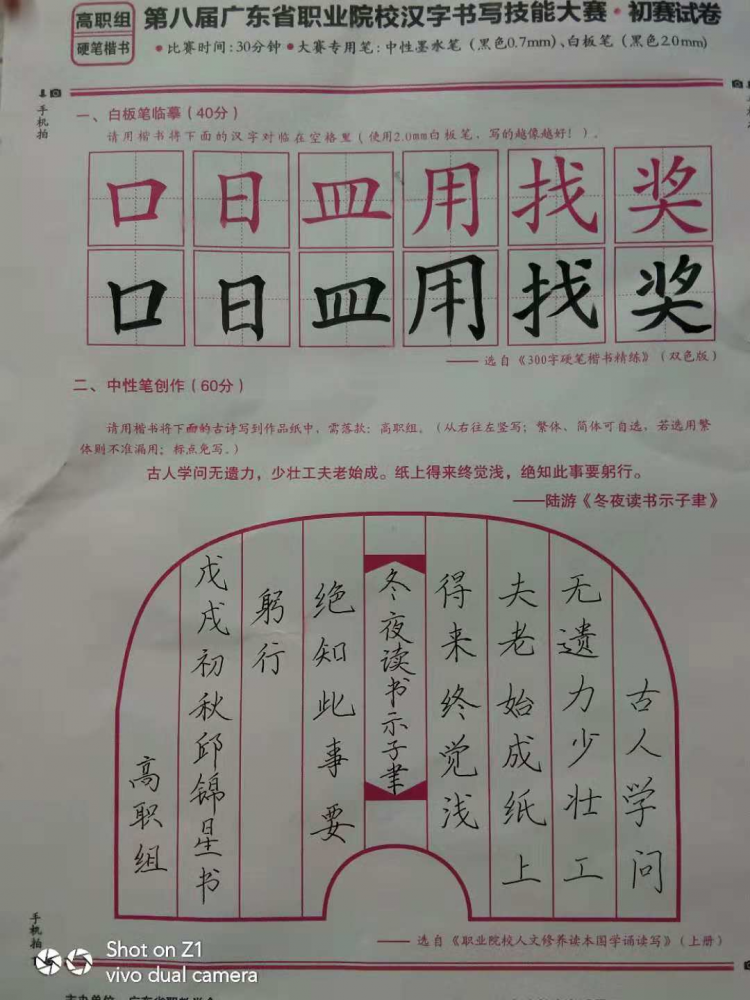 高职组
硬笔楷书
第八届广东省职业院校汉字书写技能大赛·初赛试卷
●比赛时间:30分钟●大赛专用笔:中性墨水笔(黑色0.7mm)、白板笔(黑色2.0mm)
手机拍
一、白板笔临摹(40分)
请用楷书将下面的汉字对临在空格里(使用2.0mm白板笔,写的越像越好!)。
口日皿用找奖
口日皿用找奖
——选自《300字硬笔楷书精练》(双色版)
二、中性笔创作(60分)
请用楷书将下面的古诗写到作品纸中,需落款:高职组。(从右往左竖写;繁体、简体可自选,若选用繁
体则不准漏用;标点免写。)
古人学问无遗力,少壮工夫老始成。纸上得来终觉浅,绝知此事要躬行。
——陆游《冬夜读书示子聿》
古人学问
无遗力少壮工
夫老始成纸上
得来终觉浅
冬夜读书示子聿
绝知此事要
躬行
戊戌初秋邱锦星书
高职组
——选自《职业院校人文修养读本国学诵读写》(上册)
手机拍
Shot on Z1
vivo dual camera